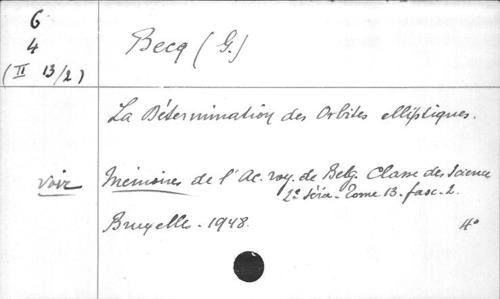 6
4
(II 13/2)
Becq (G.)
La Détermination des Orbites elliptiques.
voir Mémoires de l'Ac. roy. de Belg. Classe des Science
2e Série - Tome 13. fasc. 2.
Bruxelle - 1948. 4°